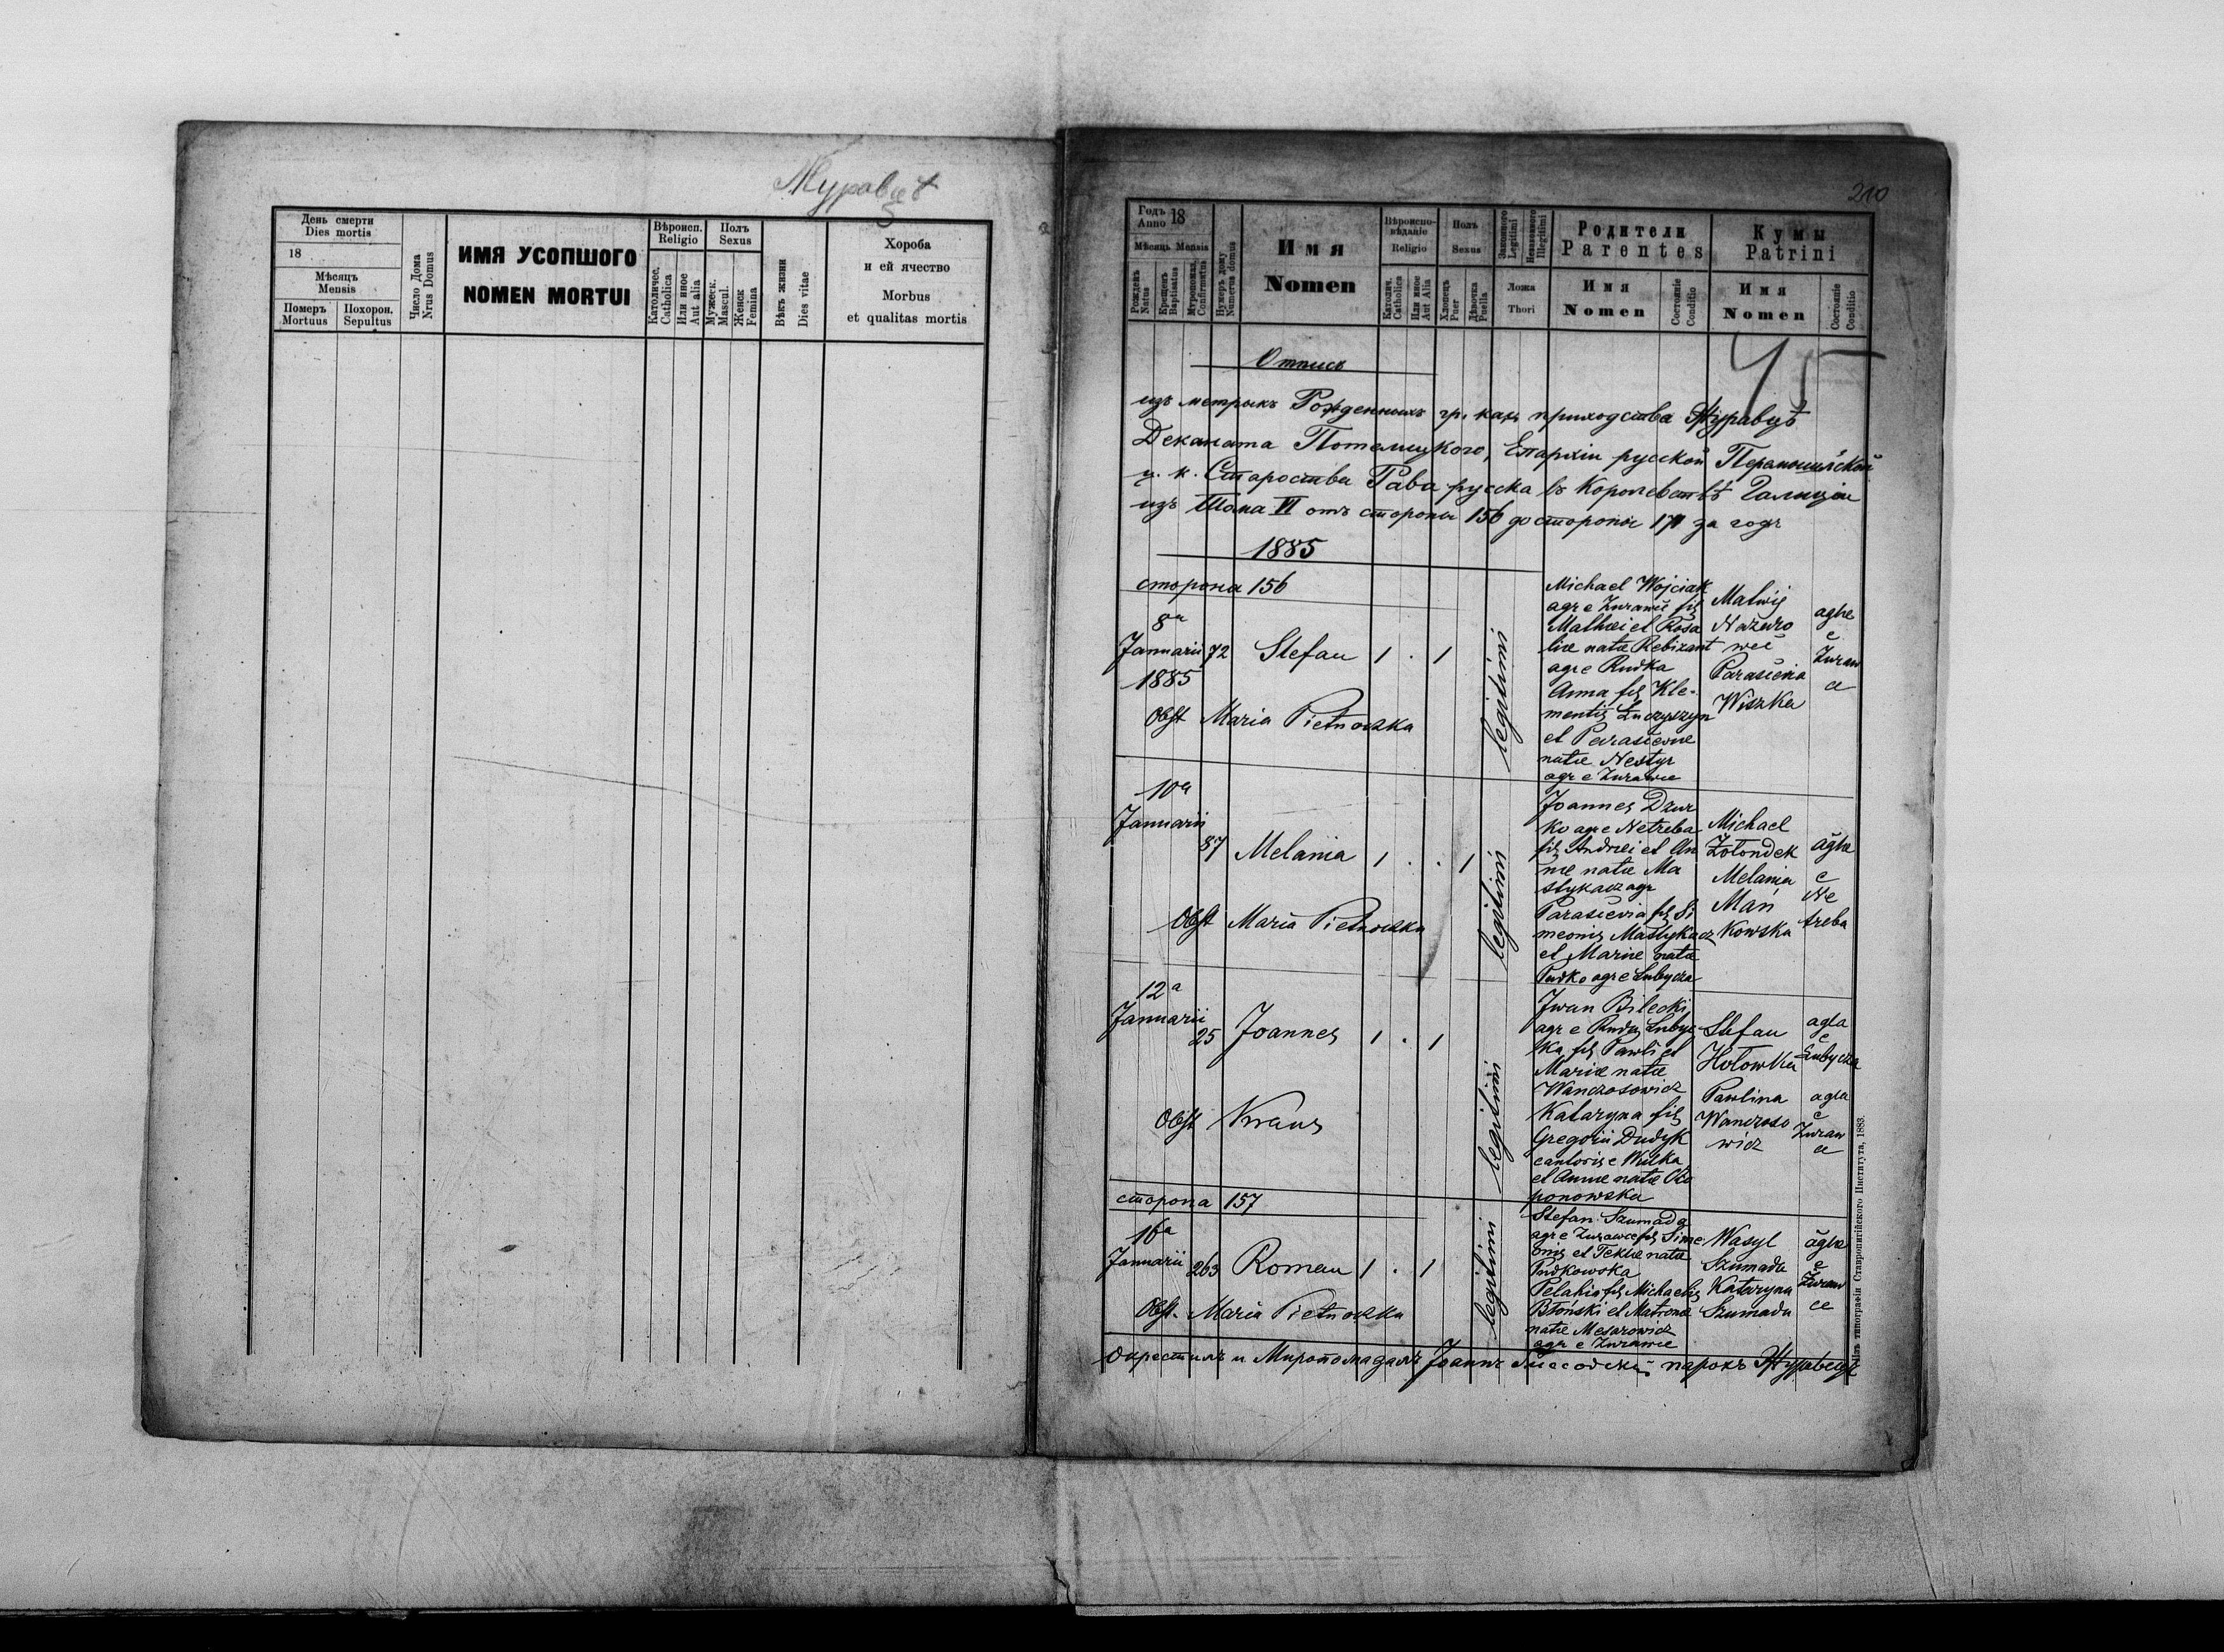 Журавцѣ
5
День смерти
Dies mortis
18
Мѣсяцъ
Mensis
Померъ
Mortuus
Похорон.
Sepultus
Число Дома
Nrus Domus
ИМЯ УСОПШОГО
NOMEN MORTUI
Вѣроисп.
Religio
Католичес.
Catholica
Или иное
Aut alia
Полъ
Sexus
Мужеск.
Mascul.
Женск
Femina
Вѣкъ жизни
Dies vitae
Хороба
и ей ячество
Morbus
et qualitas mortis
210
Годъ 18
Anno
Мѣсяцъ Mensis
Рожденъ
Natus
Крещенъ
Baptisatus
Муропомаз.
Confirmatus
Нумеръ дому
Numerus domus
Имя
Nomen
Вѣроиспо-
вѣданіе
Religio
Католич.
Catholica
Или иное
Aut Alia
Полъ
Sexus
Хлопецъ
Puer
Дѣвочка
Puella
Законного
Legitimi
Незаконного
Illegitimi
Ложа
Thori
Родители
Parentes
Имя
Nomen
Состояніе
Conditio
Кумы
Patrini
Имя
Nomen
Состояніе
Conditio
Отпись
изъ метрыкъ Рожденныхъ гр. каѳ. приходства Журавцѣ
Деканата Потелицкого, Епархіи русской Перемышлской
ц. к. Староства Рава русска въ Королевствѣ Галиціи
изъ Тома VI отъ стороны 156 до стороны 171 за годъ
1885
сторона 156
8a
Januarii 72 Stefan 1 . 1 legitimi
1885
Obst Maria Pietnoczka
Michael Wojciak
agr e Zurawce fil
Mathei et Rosa
liæ natæ Rebizant
agr e Rudka
Anna fil Kle-
mentis Luczyszyn
et Parasceviæ
natæ Nestyr
agr e Zurawce
Matwij
Nazaro
wec
Parascevia
Wiszka
agræ
e
Zuraw
ce
10a
Januarii
87 Melania 1 . . 1 legitimi
Obst Maria Pietnoczka
Joannes Dzur
ko agr e Netreba
fil Andrei et An
næ natæ Ma
slykacz agr
Parascevia fil Si
meonis Maslykacz
et Mariæ natæ
Pudko agr e Lubycza
Michael
Zołondek
Melania
Mań
kowska
agræ
e
Ne
treba
12a
Januarii
25 Joannes 1 . 1 legitimi
Obst Kraus
Iwan Bilecki
agr e Ruda Lubyc-
ka fil Pawli et
Mariæ natæ
Wanczosowicz
Kataryna fil
Gregorii Dudyk
cantoris e Wulka
et Annæ natæ Oso
ponowska
Stefan
Hołowka
Pawlina
Wanczoso
wicz
agra
e
Lubycza
agra
e
Zuraw
ce
сторона 157
16a
Januarii 263 Roman 1 . 1 legitimi
Obst. Maria Pietnoczka
Stefan Szumada
agr e Zurawce fil Sime
onis et Teklæ natæ
Pudkowska
Pelahia fil Michaelis
Błoński et Matronæ
natæ Mesarowicz
agr e Zurawce
Wasyl
Szumada
Kataryna
Szumada
agræ
e
Zuraw
ce
Окрестилъ и Миропомазалъ Іоаннъ парохъ Журавецкій
Изъ типографіи Ставропигійского Института, 1883.